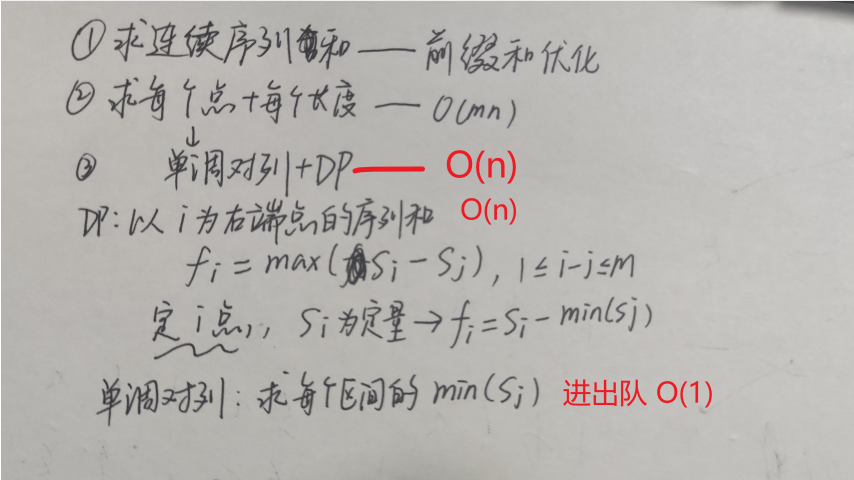 ① 求连续序列和 —— 前缀和优化
② 求每个点+每个长度 —— O(mn)
↓
③ 单调对列+DP —— O(n)
DP:以 i 为右端点的序列和 O(n)
fi = max(Si - Sj), 1≤i-j≤m
定 i 点, Si 为定量→fi=Si-min(Sj)
单调对列:求每个区间的 min(Sj) 进出队 O(1)